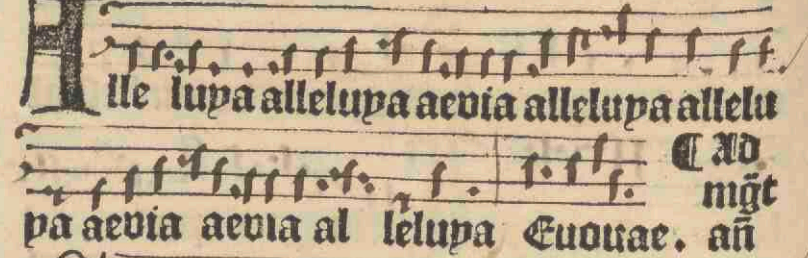 Alle luya alleluya aevia alleluya allelu
ya aevia aevia al leluya Euouae. ¶ Ad
mg̃t
añ